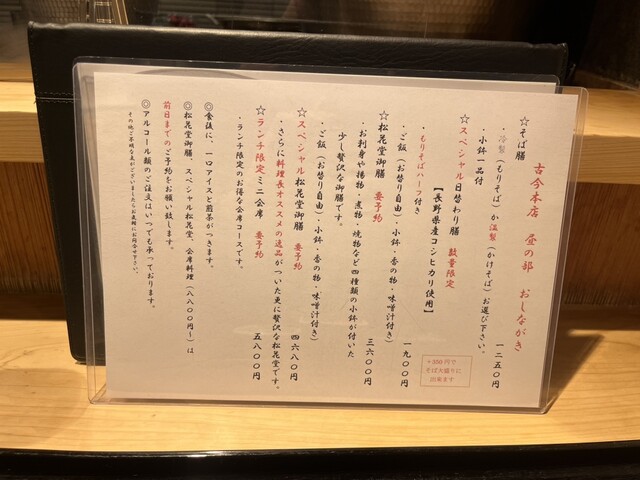 古今本店 昼の部 おしながき
☆そば膳 一二五〇円
・冷製(もりそば)か温製(かけそば)お選び下さい。
・小鉢一品付
☆スペシャル日替わり膳 数量限定 一九〇〇円
【長野県産コシヒカリ使用】
・もりそばハーフ付き
・ご飯(お替り自由)・小鉢・香の物・味噌汁付き)
+350円で
そば大盛りに
出来ます
☆松花堂御膳 要予約 三六〇〇円
・お刺身や揚物・煮物・焼物など四種類の小鉢が付いた
少し贅沢な御膳です。
・ご飯(お替り自由)・小鉢・香の物・味噌汁付き)
☆スペシャル松花堂御膳 要予約 四六八〇円
・さらに料理長オススメの逸品がついた更に贅沢な松花堂です。
☆ランチ限定ミニ会席 要予約 五八〇〇円
・ランチ限定のお得な会席コースです。
◎食後に、一口アイスと煎茶がつきます。
◎松花堂御膳、スペシャル松花堂、会席料理(八八〇〇円~)は
前日までのご予約をお願い致します。
◎アルコール類のご注文はいつでも承っております。
その他ご不明な点がございましたらお気軽にお問合せ下さい。